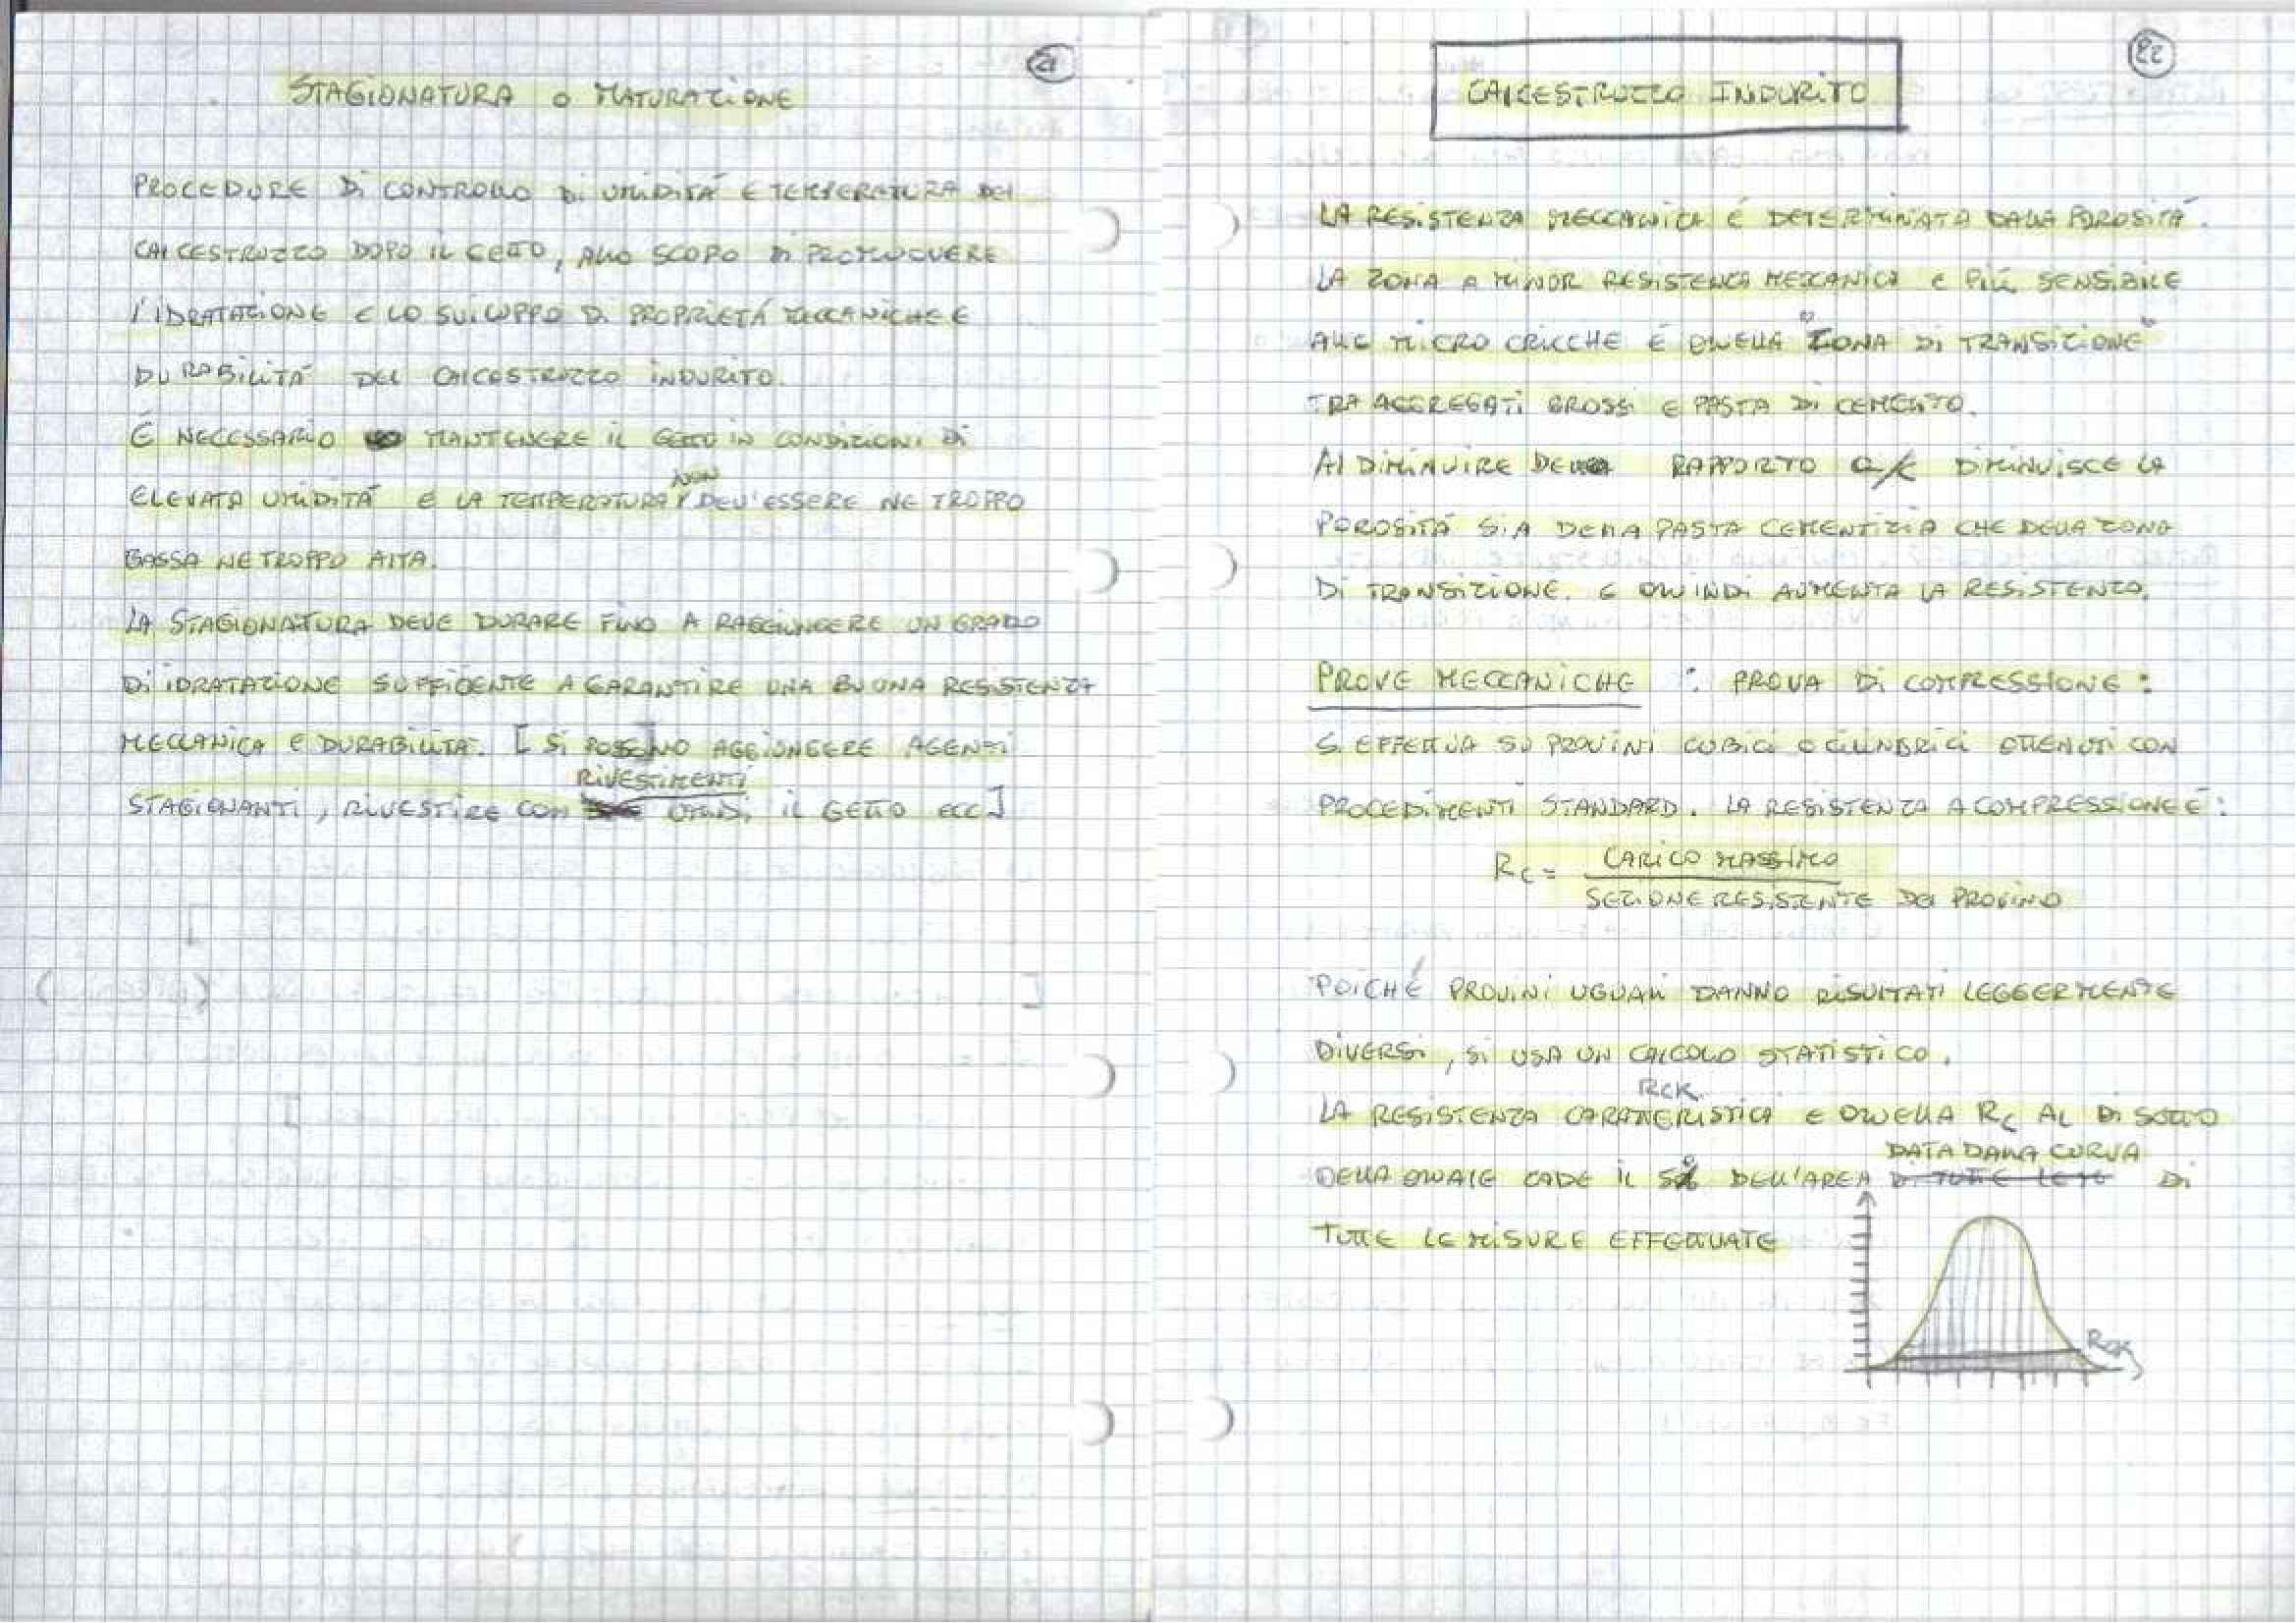 21
STAGIONATURA O MATURAZIONE
PROCEDURE DI CONTROLLO DI UMIDITÁ E TEMPERATURA DEL
CALCESTRUZZO DOPO IL GETTO, ALLO SCOPO DI PROMUOVERE
L'IDRATAZIONE E LO SVILUPPO DI PROPRIETÁ MECCANICHE E
DURABILITÁ DEL CALCESTRUZZO INDURITO.
É NECESSARIO MANTENERE IL GETTO IN CONDIZIONI DI
ELEVATA UMIDITÁ E LA TEMPERATURA NON DEV'ESSERE NE TROPPO
BASSA NE TROPPO ALTA.
LA STAGIONATURA DEVE DURARE FINO A RAGGIUNGERE UN GRADO
DI IDRATAZIONE SUFFICENTE A GARANTIRE UNA BUONA RESISTENZA
MECCANICA E DURABILITÁ. [SI POSSONO AGGIUNGERE AGENTI
STAGIONANTI, RIVESTIRE CON RIVESTIMENTI UMIDI IL GETTO ECC]
22
CALCESTRUZZO INDURITO
LA RESISTENZA MECCANICA É DETERMINATA DALLA POROSITÁ.
LA ZONA A MINOR RESISTENZA MECCANICA E PIÚ SENSIBILE
ALLE MICRO CRICCHE É QUELLA "ZONA DI TRANSIZIONE"
TRA AGGREGATI GROSSI E PASTA DI CEMENTO.
AL DIMINUIRE DEL RAPPORTO a/c DIMINUISCE LA
POROSITÁ SIA DELLA PASTA CEMENTIZIA CHE DELLA ZONA
DI TRANSIZIONE. E QUINDI AUMENTA LA RESISTENZA.
PROVE MECCANICHE : PROVA DI COMPRESSIONE :
SI EFFETTUA SU PROVINI CUBICI O CILINDRICI OTTENUTI CON
PROCEDIMENTI STANDARD. LA RESISTENZA A COMPRESSIONE É :
RC = CARICO MASSIMO
SEZIONE RESISTENTE DEL PROVINO
POICHÉ PROVINI UGUALI DANNO RISULTATI LEGGERMENTE
DIVERSI, SI USA UN CALCOLO STATISTICO.
RCK
LA RESISTENZA CARATTERISTICA E QUELLA RC AL DI SOTTO
DELLA QUALE CADE IL 5% DELL'AREA DATA DALLA CURVA DI
TUTTE LE MISURE EFFETTUATE
RCK